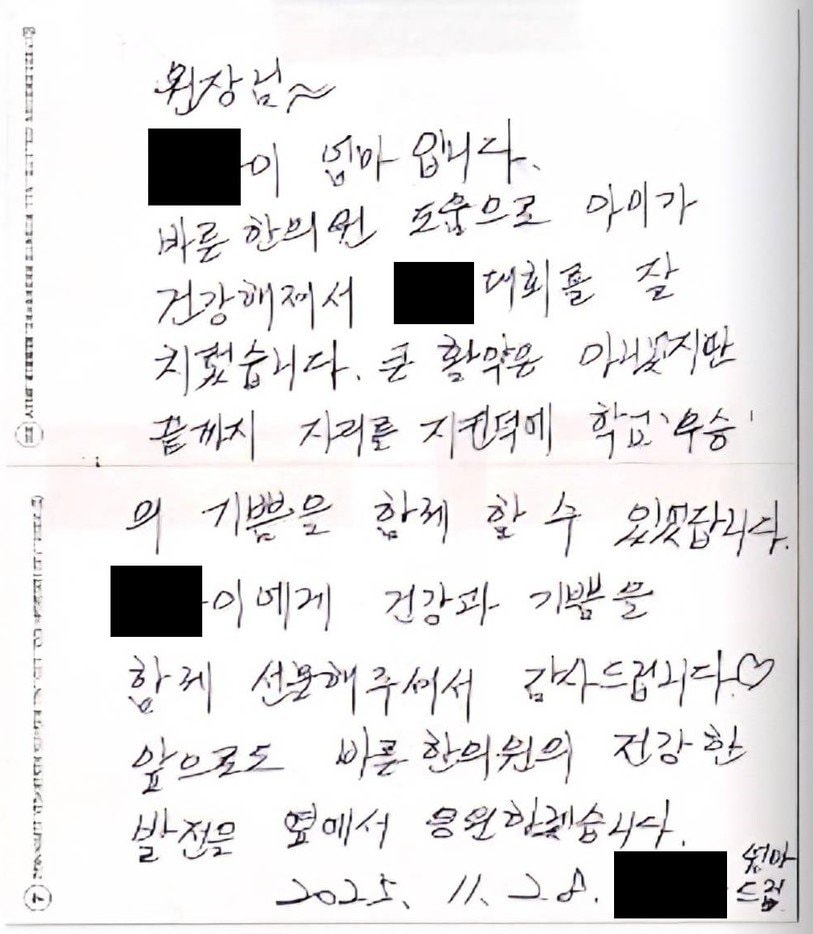 원장님~
이 엄마입니다.
바른한의원 도움으로 아이가
건강해져서 대회를 잘
치렀습니다. 큰 활약은 아니었지만
끝까지 자리를 지킨덕에 학교 '우승'
의 기쁨을 함께 할 수 있었답니다.
이에게 건강과 기쁨을
함께 선물해주셔서 감사드립니다♡
앞으로도 바른한의원의 건강한
발전을 옆에서 응원하겠습니다.
2025. 11. 28. 엄마
드림